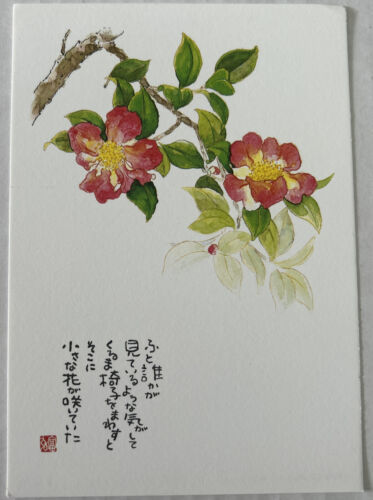 ふと誰かが
見ているような気がして
くるま椅子をまわすと
そこに
小さな花が咲いていた